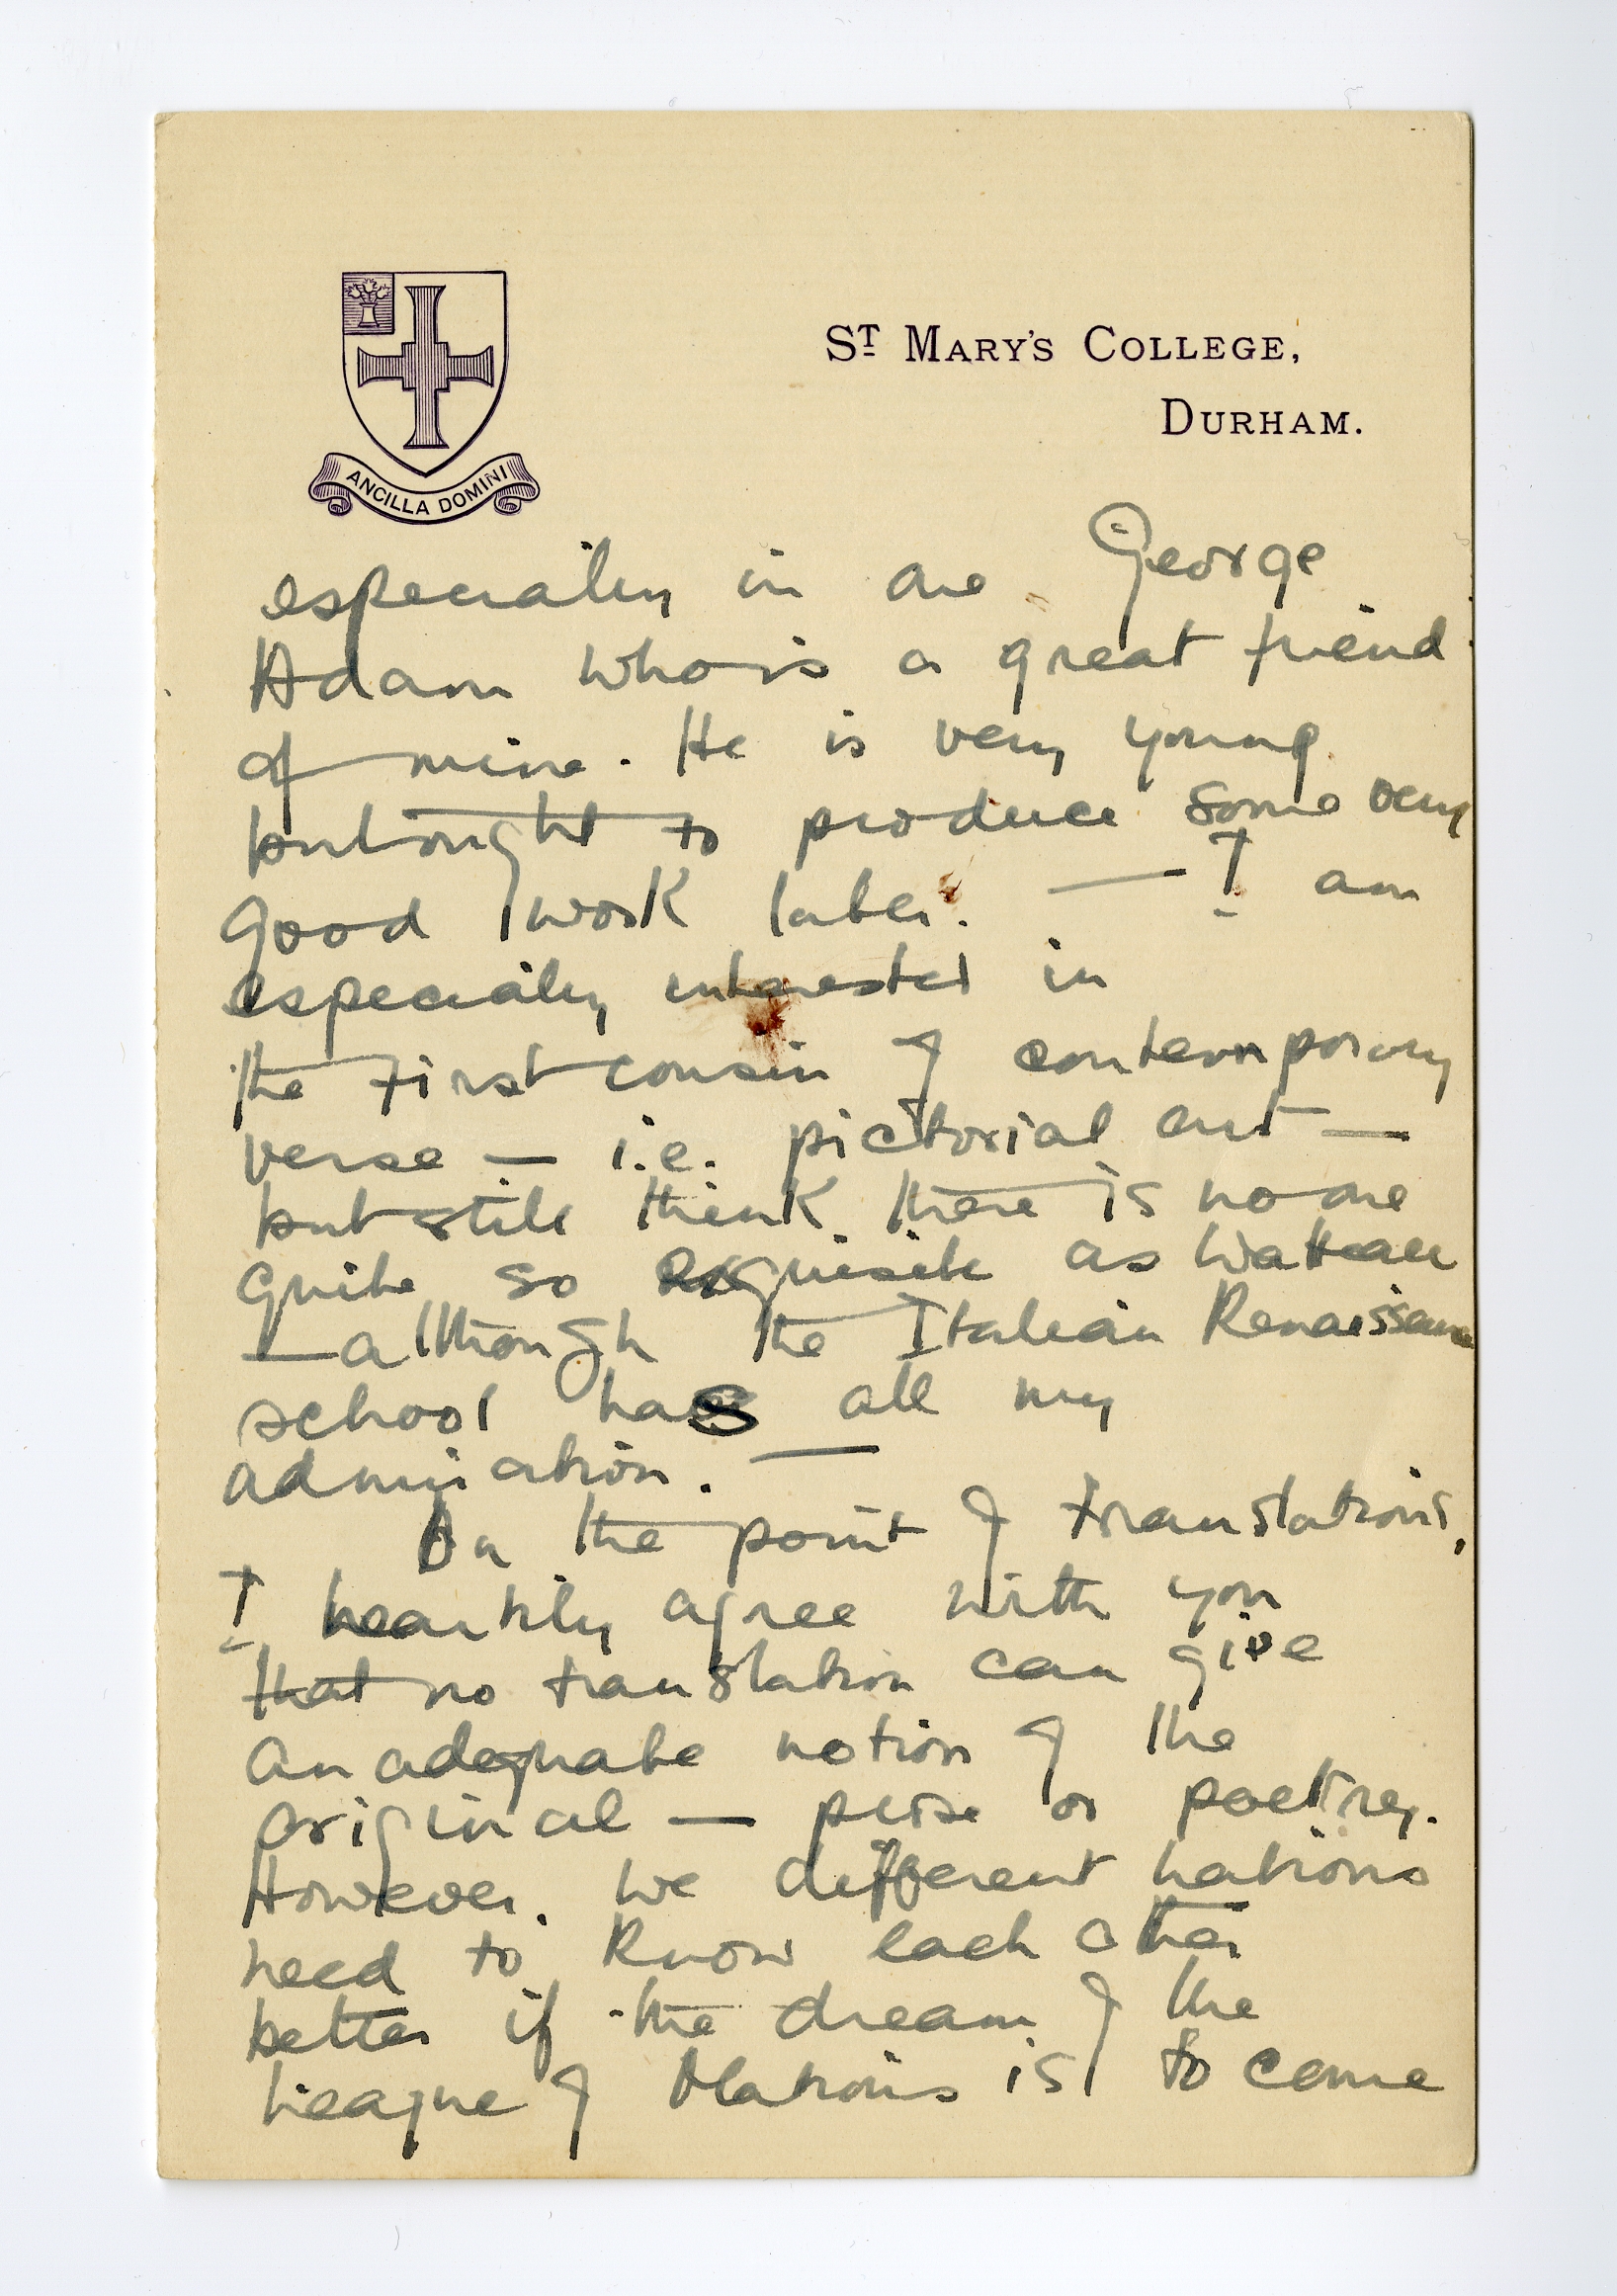 ST MARY'S COLLEGE,
DURHAM.
ANCILLA DOMINI
especially in one George
Adam who is a great friend
of mine. He is very young
but ought to produce some very
good work later. — I am
especially interested in
the first cousin of contemporary
verse — i.e. pictorial art —
but still think there is no one
quite so exquisite as Watteau
— although the Italian Renaissance
school has all my
admiration. —
On the point of translations,
I heartily agree with you
that no translation can give
an adequate notion of the
original — prose or poetry.
However, we different nations
need to know each other
better if the dream of the
League of Nations is to come